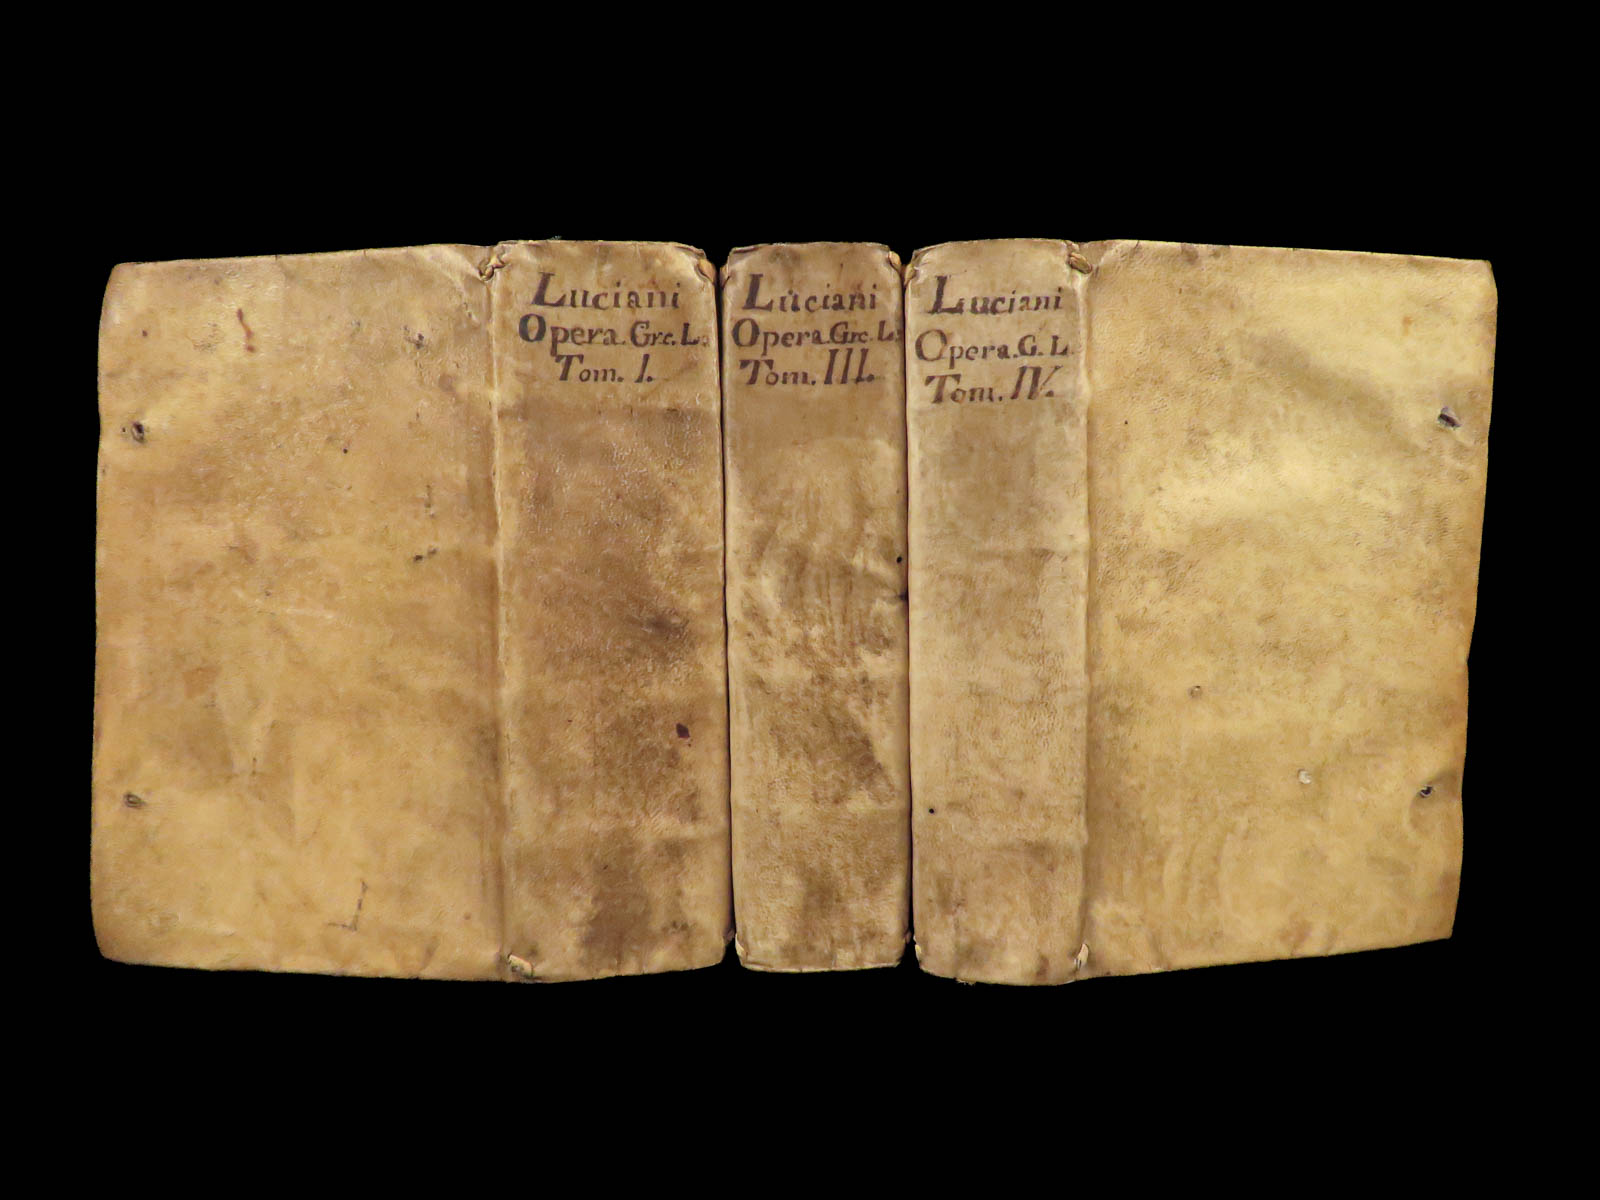 Luciani
Opera. Gre. L.
Tom. I.
Luciani
Opera. Gre. L:
Tom. III.
Luciani
Opera. G. L.
Tom. IV.